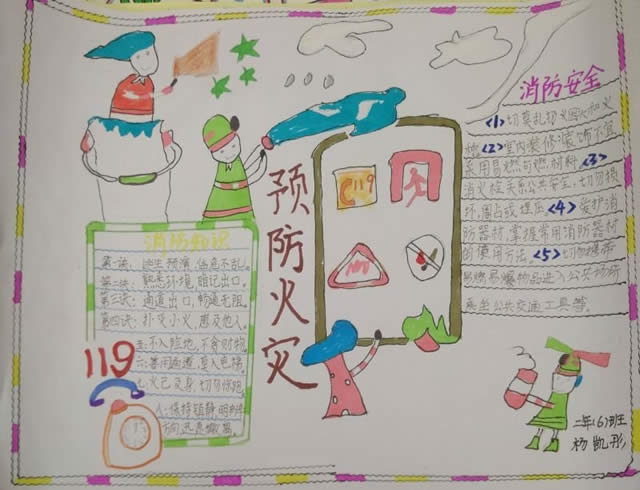 消防安全
<1>切莫乱扔烟头和火
种<2>室内装修装饰不宜
采用易燃可燃材料<3>
消火栓关系公共安全,切勿损
坏,圈占或埋压<4>爱护消
防器材,掌握常用消防器材
的使用方法<5>切勿携带
易燃易爆物品进入公共场所
乘坐公共交通工具等。
119
预防火灾
消防知识
第一诀:逃生预演,临危不乱。
第二诀:熟悉环境,暗记出口。
第三诀:通道出口,畅通无阻。
第四诀:扑灭小火,惠及他人。
五:不入险地,不贪财物
六:善用通道,莫入电梯
七:火已及身,切勿惊跑
八:保持镇静,明辨
方向迅速撤离
119
二年(6)班
杨凯彤